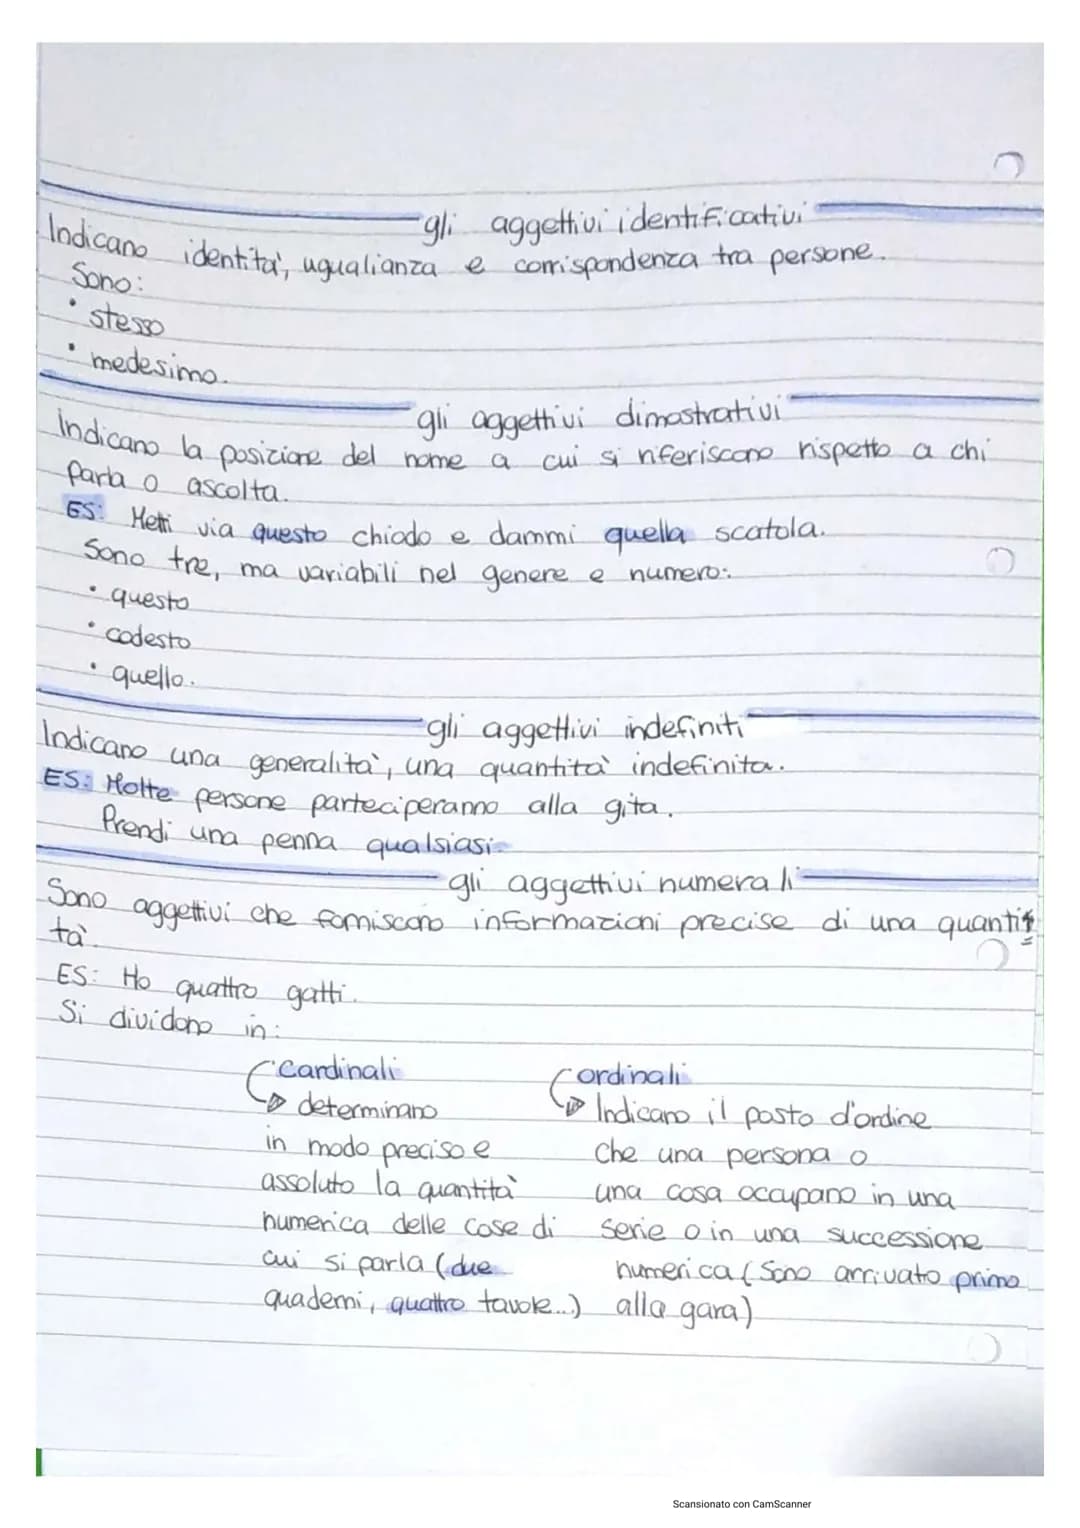 gli aggettivi identificativi
Indicano identità, ugualianza e corrispondenza tra persone.
Sono:
• stesso
• medesimo.
gli aggettivi dimostrativi
Indicano la posizione del nome a cui si riferiscono rispetto a chi
parla o ascolta.
ES: Metti via questo chiodo e dammi quella scatola.
Sono tre, ma variabili nel genere e numero:
• questo
• codesto
• quello.
gli aggettivi indefiniti
Indicano una generalità, una quantità indefinita.
ES: Molte persone parteciperanno alla gita.
Prendi una penna qualsiasi
gli aggettivi numerali
Sono aggettivi che forniscono informazioni precise di una quanti=
tà.
ES: Ho quattro gatti.
Si dividono in:
Cardinali
→ determinano
in modo preciso e
assoluto la quantità
numerica delle cose di
cui si parla (due
quaderni, quattro tavole...)
ordinali
→ Indicano il posto d'ordine
che una persona o
una cosa occupano in una
serie o in una successione
numerica (Sono arrivato primo
alla gara)
Scansionato con CamScanner